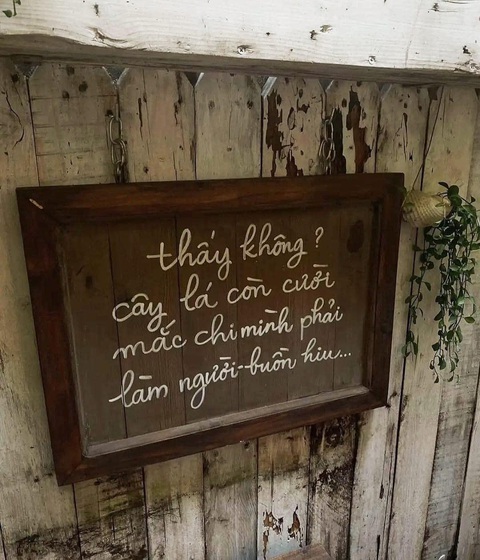 thấy không ?
cây lá còn cười
mắc chi mình phải
làm người-buồn hiu...